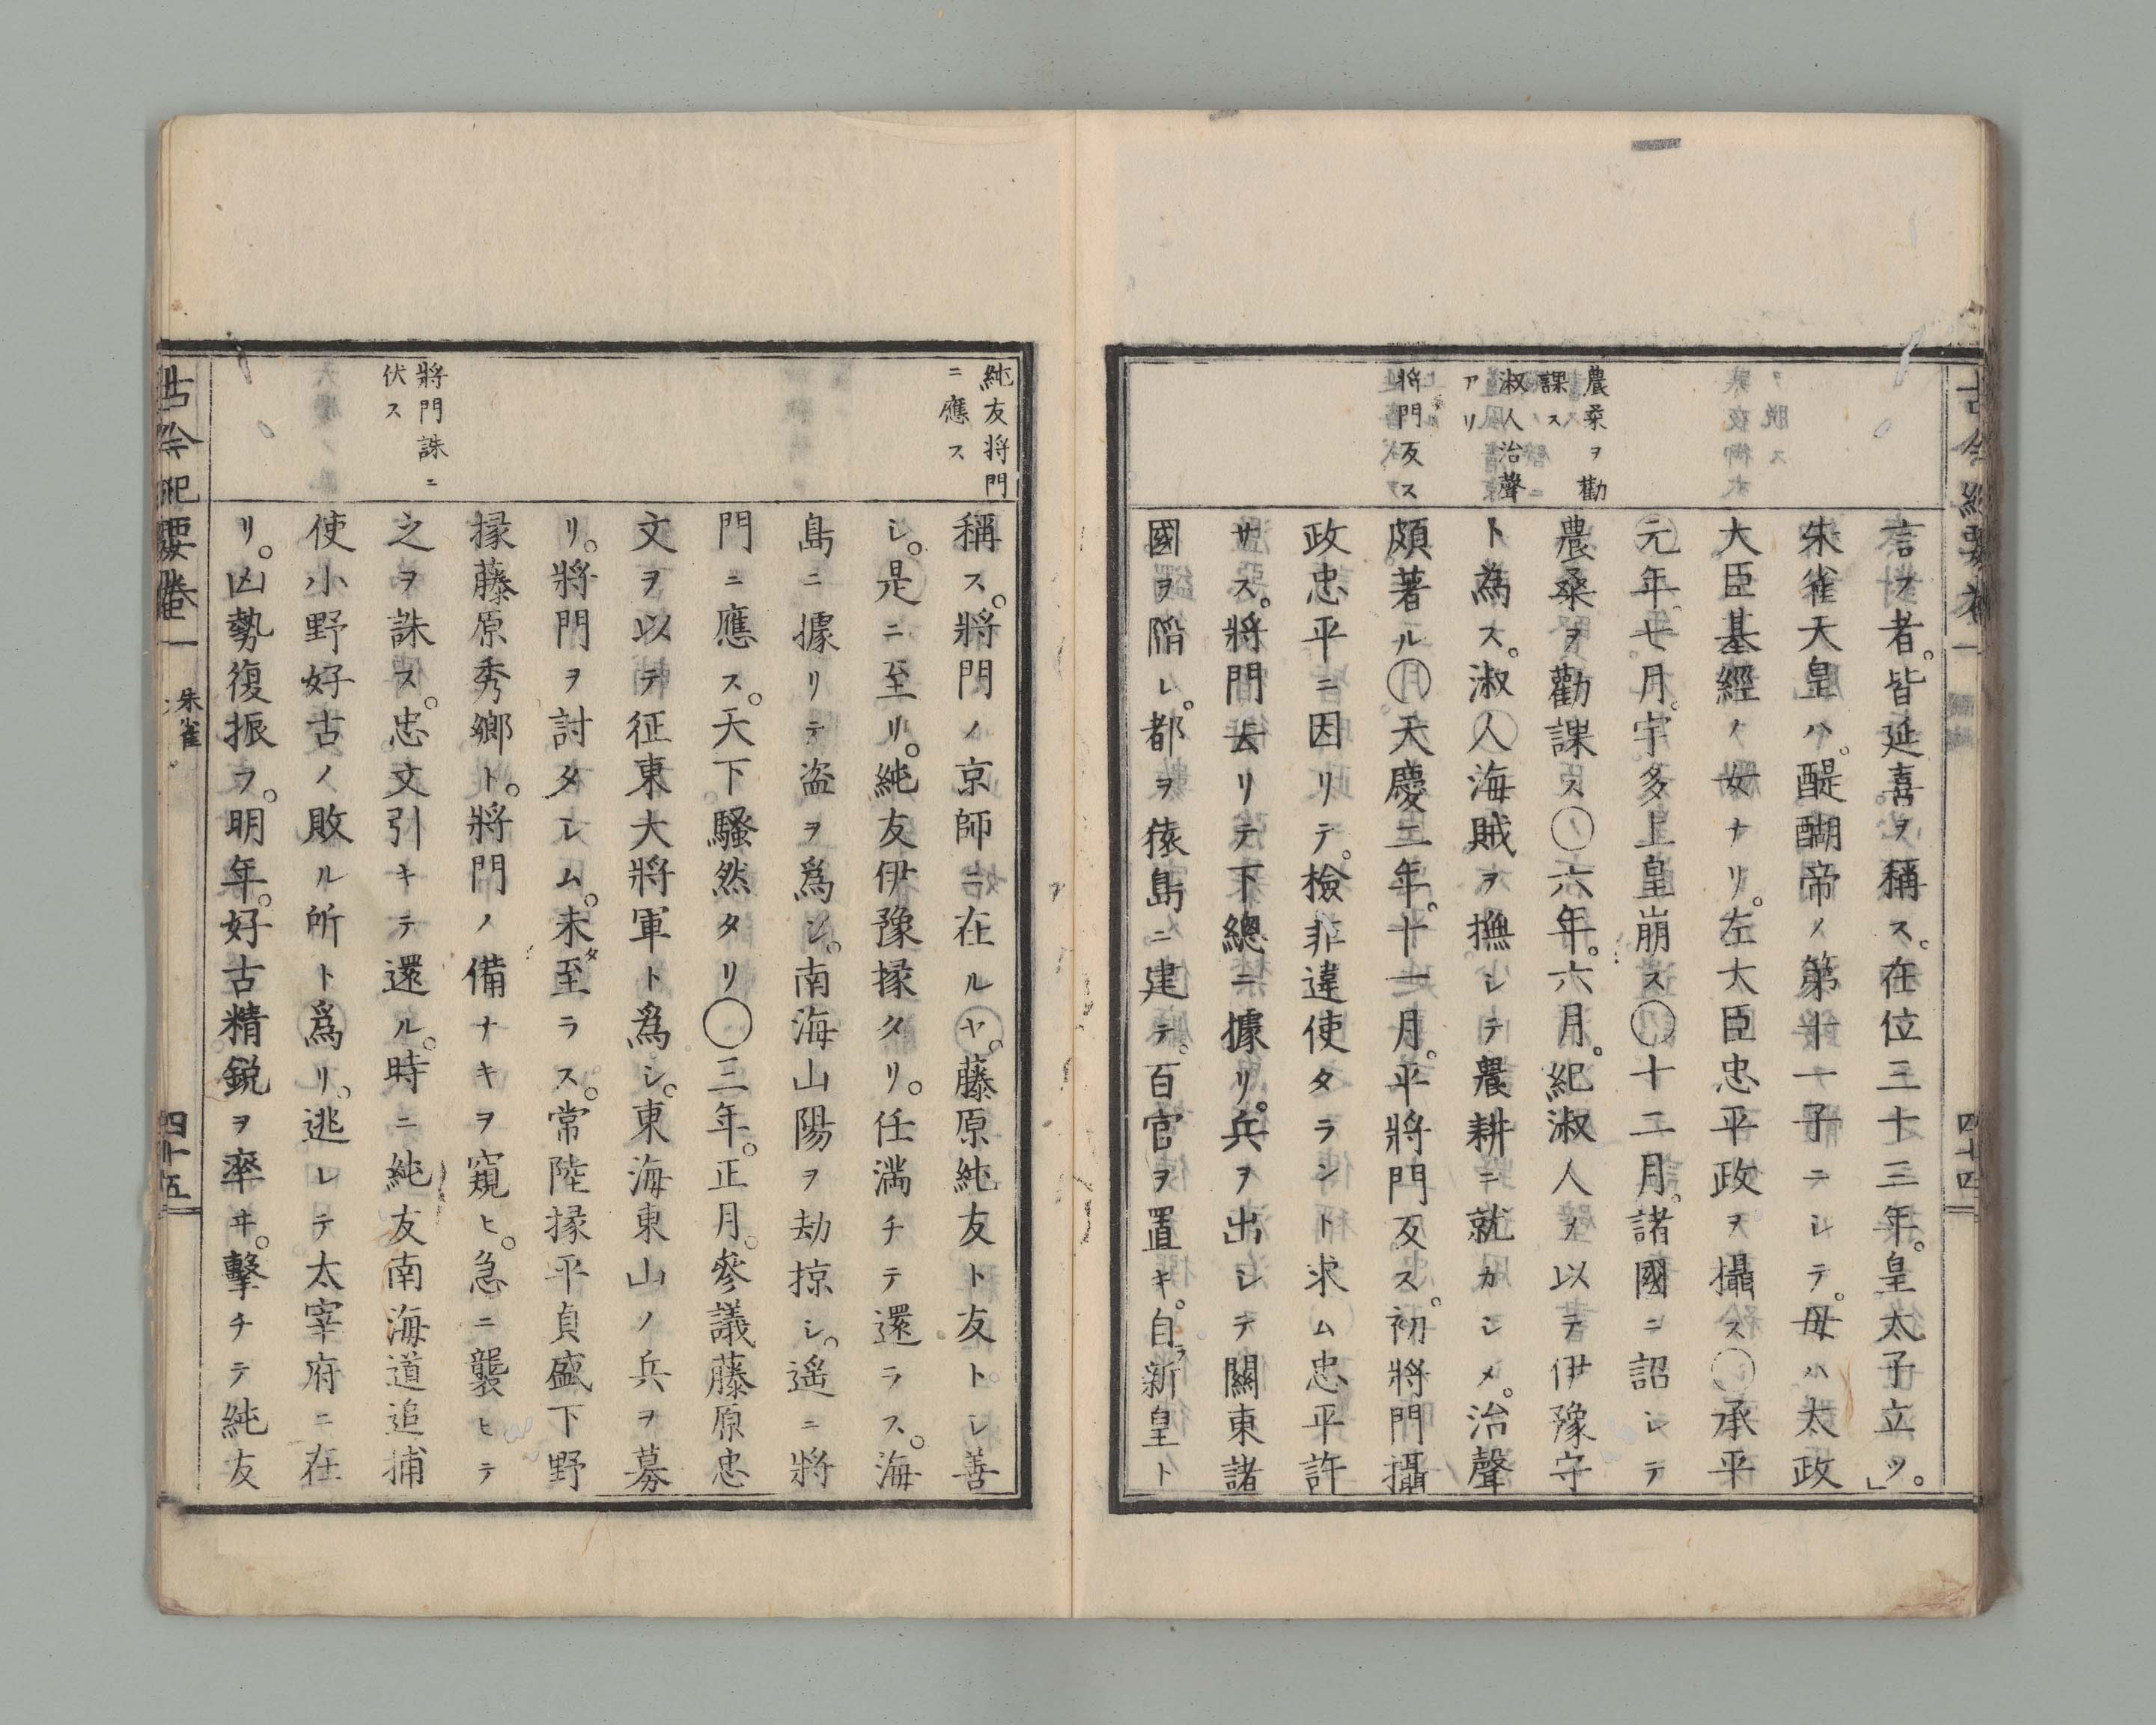 古今紀要卷一
四十四
農桑ヲ勸
課ス
淑人治聲
アリ
將門反ス
言フ者。皆延喜ヲ稱ス。在位三十三年。皇太子立ツ。」
朱雀天皇ハ。醍醐帝ノ第十一子ニシテ。母ハ太政
大臣基經ノ女ナリ。左大臣忠平政ヲ攝ス○承平
元年。七月。宇多上皇崩ス○十二月。諸國ニ詔シテ
農桑ヲ勸課ス○六年。六月。紀淑人ヲ以テ伊豫守
ト為ス。淑人海賊ヲ撫シテ農耕ニ就カシメ。治聲
頗著ル○天慶二年。十一月。平將門反ス。初將門攝
政忠平ニ因リテ。檢非違使タラント求ム忠平許
サス。將門去リテ下總ニ據リ。兵ヲ出シテ關東諸
國ヲ陷レ。都ヲ猿島ニ建テ。百官ヲ置キ。自ラ新皇ト
純友將門
ニ應ス
將門誅ニ
伏ス
稱ス。將門ノ京師ニ在ルヤ。藤原純友ト友トシ善
シ。是ニ至リ。純友伊豫掾タリ。任滿チテ還ラス。海
島ニ據リテ盗ヲ爲シ。南海山陽ヲ劫掠シ。遙ニ將
門ニ應ス。天下騷然タリ○三年。正月。參議藤原忠
文ヲ以テ征東大將軍ト爲シ。東海東山ノ兵ヲ募
リ。將門ヲ討タシム。未タ至ラス。常陸掾平貞盛下野
掾藤原秀鄉ト。將門ノ備ナキヲ窺ヒ。急ニ襲ヒテ
之ヲ誅ス。忠文引キテ還ル。時ニ純友南海道追捕
使小野好古ノ敗ル所ト爲リ。逃レテ太宰府ニ在
リ。凶勢復振フ。明年。好古精銳ヲ率ヰ。擊チテ純友
古今紀要卷一
朱雀
四十五